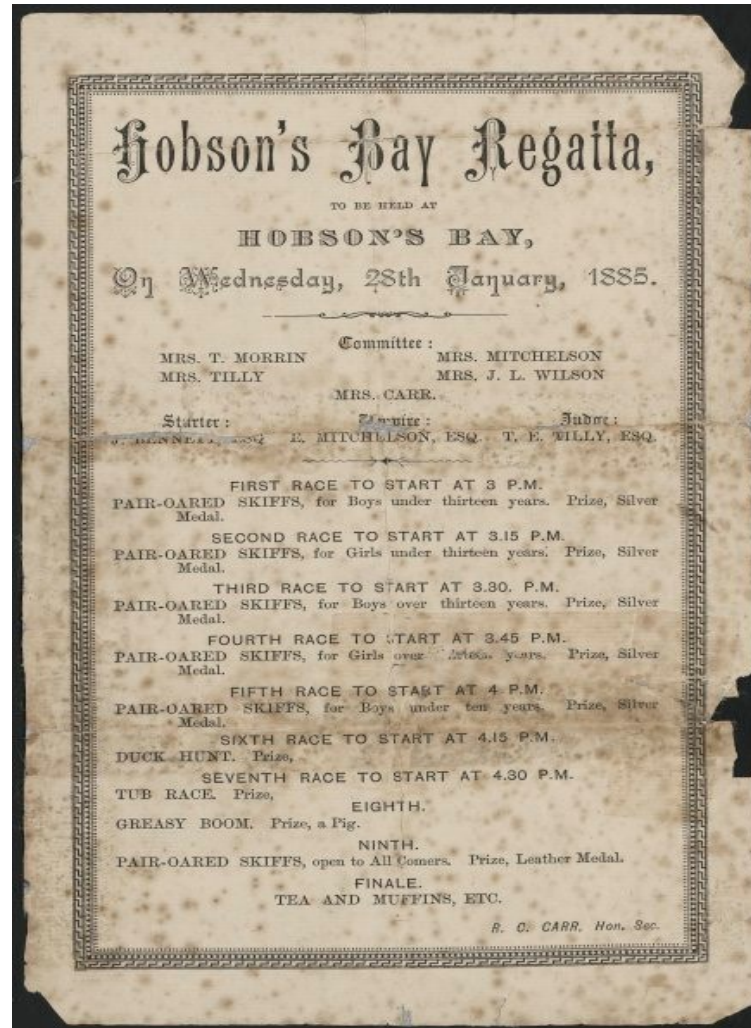 Hobson's Bay Regatta,
TO BE HELD AT
HOBSON'S BAY,
On Wednesday, 28th January, 1885.
Committee:
MRS. T. MORRIN MRS. MITCHELSON
MRS. TILLY MRS. J. L. WILSON
MRS. CARR.
Starter: Umpire: Judge:
J. BENNETT, ESQ. E. MITCHELSON, ESQ. T. E. TILLY, ESQ.
FIRST RACE TO START AT 3 P.M.
PAIR-OARED SKIFFS, for Boys under thirteen years. Prize, Silver
Medal.
SECOND RACE TO START AT 3.15 P.M.
PAIR-OARED SKIFFS, for Girls under thirteen years. Prize, Silver
Medal.
THIRD RACE TO START AT 3.30. P.M.
PAIR-OARED SKIFFS, for Boys over thirteen years. Prize, Silver
Medal.
FOURTH RACE TO START AT 3.45 P.M.
PAIR-OARED SKIFFS, for Girls over years. Prize, Silver
Medal.
FIFTH RACE TO START AT 4 P.M.
PAIR-OARED SKIFFS, for Boys under ten years. Prize, Silver
Medal.
SIXTH RACE TO START AT 4.15 P.M.
DUCK HUNT. Prize,
SEVENTH RACE TO START AT 4.30 P.M.
TUB RACE. Prize,
EIGHTH.
GREASY BOOM. Prize, a Pig.
NINTH.
PAIR-OARED SKIFFS, open to All Comers. Prize, Leather Medal.
FINALE.
TEA AND MUFFINS, ETC.
R. C. CARR, Hon. Sec.